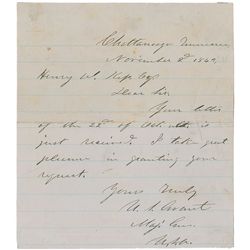 Chattanooga Tennessee
November 2d 1863
Henry W. Esq
Dear Sir
Your letter
of the 22d of Oct. is
just received. I take great
pleasure in granting your
request.
Yours Truly
U. S. Grant
Maj. Gen.
U.S.A.